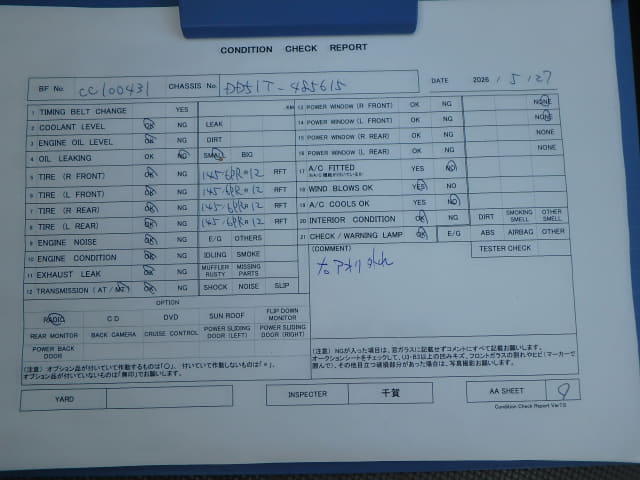 CONDITION CHECK REPORT
BF No. CC100431 CHASSIS No. DD51T-485615 DATE 2026 / 5 / 27
1 TIMING BELT CHANGE YES KM
2 COOLANT LEVEL OK NG LEAK
3 ENGINE OIL LEVEL OK NG DIRT
4 OIL LEAKING OK NG SMALL BIG
5 TIRE (R FRONT) OK NG 145-6PR R12 RFT
6 TIRE (L FRONT) OK NG 145-6PR R12 RFT
7 TIRE (R REAR) OK NG 145-6PR R12 RFT
8 TIRE (L REAR) OK NG 145-6PR R12 RFT
9 ENGINE NOISE OK NG E/G OTHERS
10 ENGINE CONDITION OK NG IDLING SMOKE
11 EXHAUST LEAK OK NG MUFFLER RUSTY MISSING PARTS
12 TRANSMISSION (AT / MT) OK NG SHOCK NOISE SLIP
13 POWER WINDOW (R FRONT) OK NG NONE
14 POWER WINDOW (L FRONT) OK NG NONE
15 POWER WINDOW (R REAR) OK NG NONE
16 POWER WINDOW (L REAR) OK NG NONE
17 A/C FITTED YES NO
18 WIND BLOWS OK YES NO
19 A/C COOLS OK YES NO
20 INTERIOR CONDITION OK NG DIRT SMOKING SMELL OTHER SMELL
21 CHECK / WARNING LAMP OK E/G ABS AIRBAG OTHER
(COMMENT) TESTER CHECK
OPTION
RADIO CD DVD SUN ROOF FLIP DOWN MONITOR
REAR MONITOR BACK CAMERA CRUISE CONTROL POWER SLIDING DOOR (LEFT) POWER SLIDING DOOR (RIGHT)
POWER BACK DOOR
(注意) オプション品が付いていて作動するものは「〇」、付いていて作動しないものは「×」、
オプション品が付いていないものは「無印」でお願いします。
(注意) NGが入った項目は、窓ガラスに記載せずコメントにすべて記載お願いします。
オークションシートをチェックして、U3・B3以上の凹みキズ、フロントガラスの割れやヒビ(マーカーで
囲んで)、その他目立つ破損部分があった場合は、写真撮影お願いします。
YARD
INSPECTER 千賀
AA SHEET
Condition Check Report Ver7.0